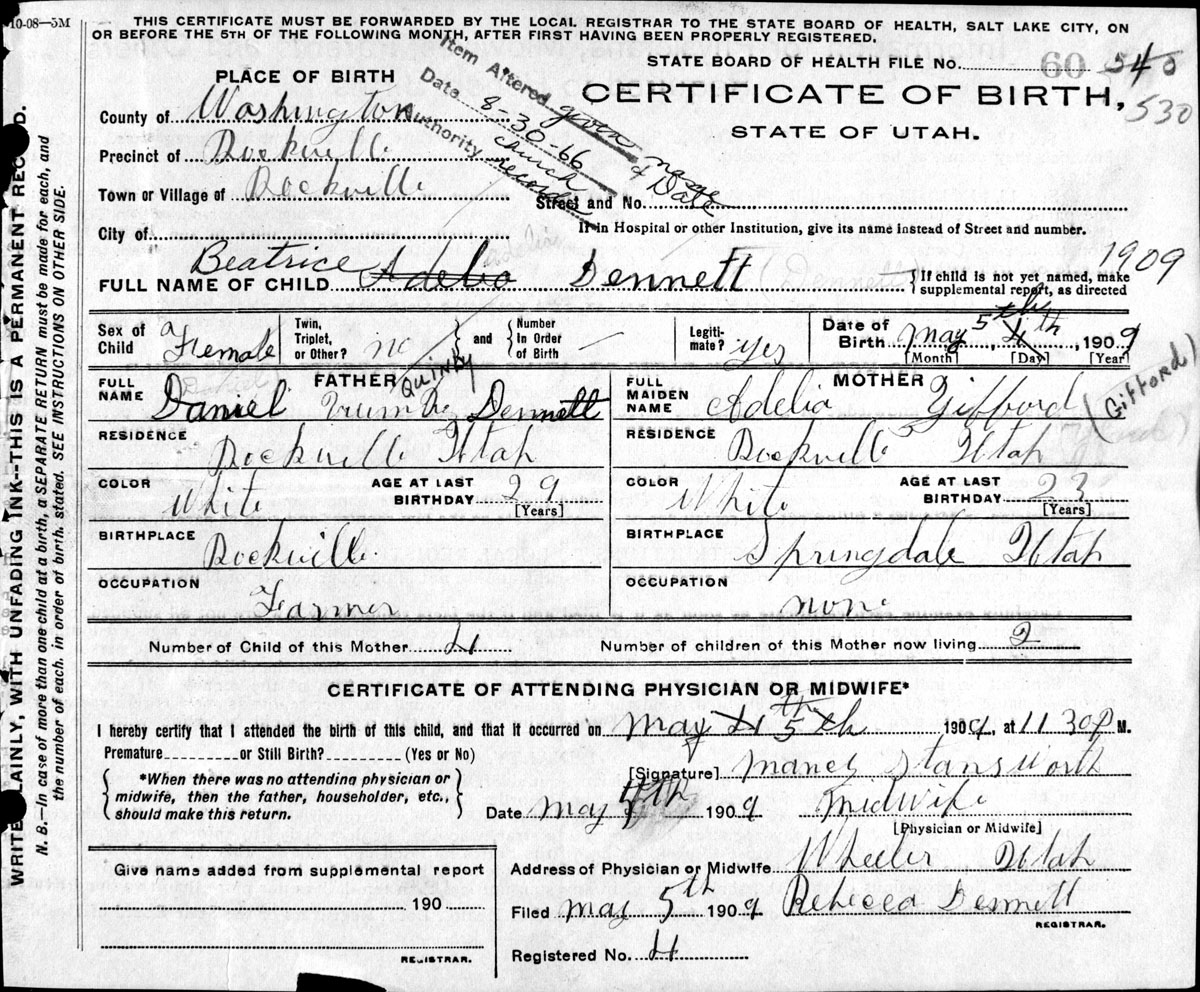 10-08-5M
THIS CERTIFICATE MUST BE FORWARDED BY THE LOCAL REGISTRAR TO THE STATE BOARD OF HEALTH, SALT LAKE CITY, ON
OR BEFORE THE 5TH OF THE FOLLOWING MONTH, AFTER FIRST HAVING BEEN PROPERLY REGISTERED.
STATE BOARD OF HEALTH FILE No. 60 540
530
PLACE OF BIRTH
CERTIFICATE OF BIRTH,
STATE OF UTAH.
Item Altered given name & Date
Date 8-30-66
Authority church records
County of Washington
Precinct of Rockville
Town or Village of Rockville
Street and No.
City of
If in Hospital or other Institution, give its name instead of Street and number.
1909
FULL NAME OF CHILD Beatrice Adelia Dennett (Dennett)
{If child is not yet named, make supplemental report, as directed
Sex of Child Female
Twin, Triplet, or Other? no
and
Number In Order of Birth
Legitimate? yes
Date of Birth May 5th 4th, 1909
[Month] [Day] [Year]
FATHER
FULL NAME Daniel Quinby Dennett
RESIDENCE Rockville Utah
COLOR White
AGE AT LAST BIRTHDAY 29
[Years]
BIRTHPLACE Rockville
OCCUPATION Farmer
MOTHER
FULL MAIDEN NAME Adelia Gifford (Gifford)
RESIDENCE Rockville Utah
COLOR White
AGE AT LAST BIRTHDAY 23
[Years]
BIRTHPLACE Springdale Utah
OCCUPATION none
Number of Child of this Mother 4
Number of children of this Mother now living 2
CERTIFICATE OF ATTENDING PHYSICIAN OR MIDWIFE*
I hereby certify that I attended the birth of this child, and that it occurred on May 4th 5th 1909, at 11 30 P M.
Premature or Still Birth? (Yes or No)
{*When there was no attending physician or midwife, then the father, householder, etc., should make this return.}
[Signature] Nancy Stansworth
Date May 1909 Midwife
[Physician or Midwife]
Address of Physician or Midwife Wheeler Utah
Filed May 5th 1909 Rebecca Dennett
REGISTRAR.
Registered No. 4
Give name added from supplemental report
190
REGISTRAR.
WRITE PLAINLY, WITH UNFADING INK--THIS IS A PERMANENT RECORD.
N. B.--In case of more than one child at a birth, a SEPARATE RETURN must be made for each, and
the number of each, in order of birth, stated. SEE INSTRUCTIONS ON OTHER SIDE.